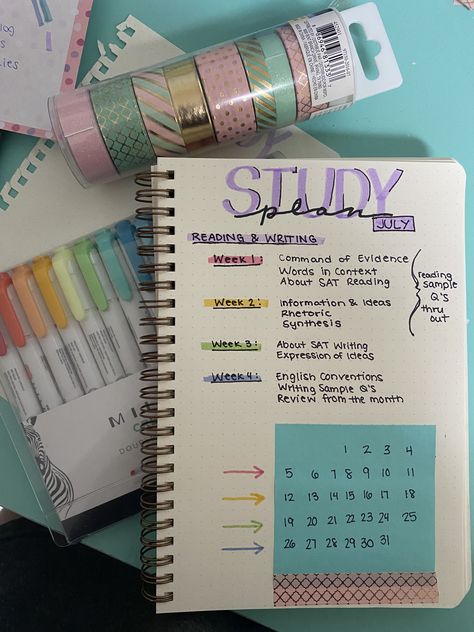 STUDY
plan
JULY
READING & WRITING
Week 1: Command of Evidence
Words in Context
About SAT Reading
Week 2: Information & Ideas
Rhetoric
Synthesis
Week 3: About SAT Writing
Expression of Ideas
Week 4: English Conventions
Writing Sample Q's
Review from the month
reading
sample
Q's
thru
out
1 2 3 4
5 6 7 8 9 10 11
12 13 14 15 16 17 18
19 20 21 22 23 24 25
26 27 28 29 30 31